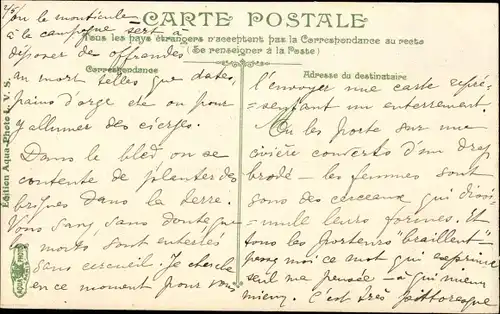 2/5
CARTE POSTALE
ou le monticule
à la campagne sert à
Tous les pays étrangers n'acceptent pas la Correspondance au recto
(Se renseigner à la Poste)
déposer de offrandes
Correspondance
Adresse du destinataire
au mort telles que dates,
pains d'orge etc ou pour
y allumer des cierges.
Dans le bled on se
contente de planter des
briques dans la terre.
Vous savez sans doute que
les morts sont enterrés
sans cercueil. Je cherche
en ce moment pour vous
l'envoyer une carte repré-
-sentant un enterrement.
On les porte sur une
civière couverte d'un drap
brodé - les femmes sont
sous des cerceaux qui dissi-
-mulent leurs formes. Et
tous les porteurs "braillent"
moi ce mot qui exprime
seul ma pensée - à qui mieux
mieux. C'est très pittoresque
Édition Aqua-Photo L. V. S.
AQUA PHOTO